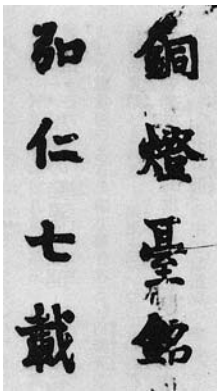 銅燈臺銘
弘仁七載